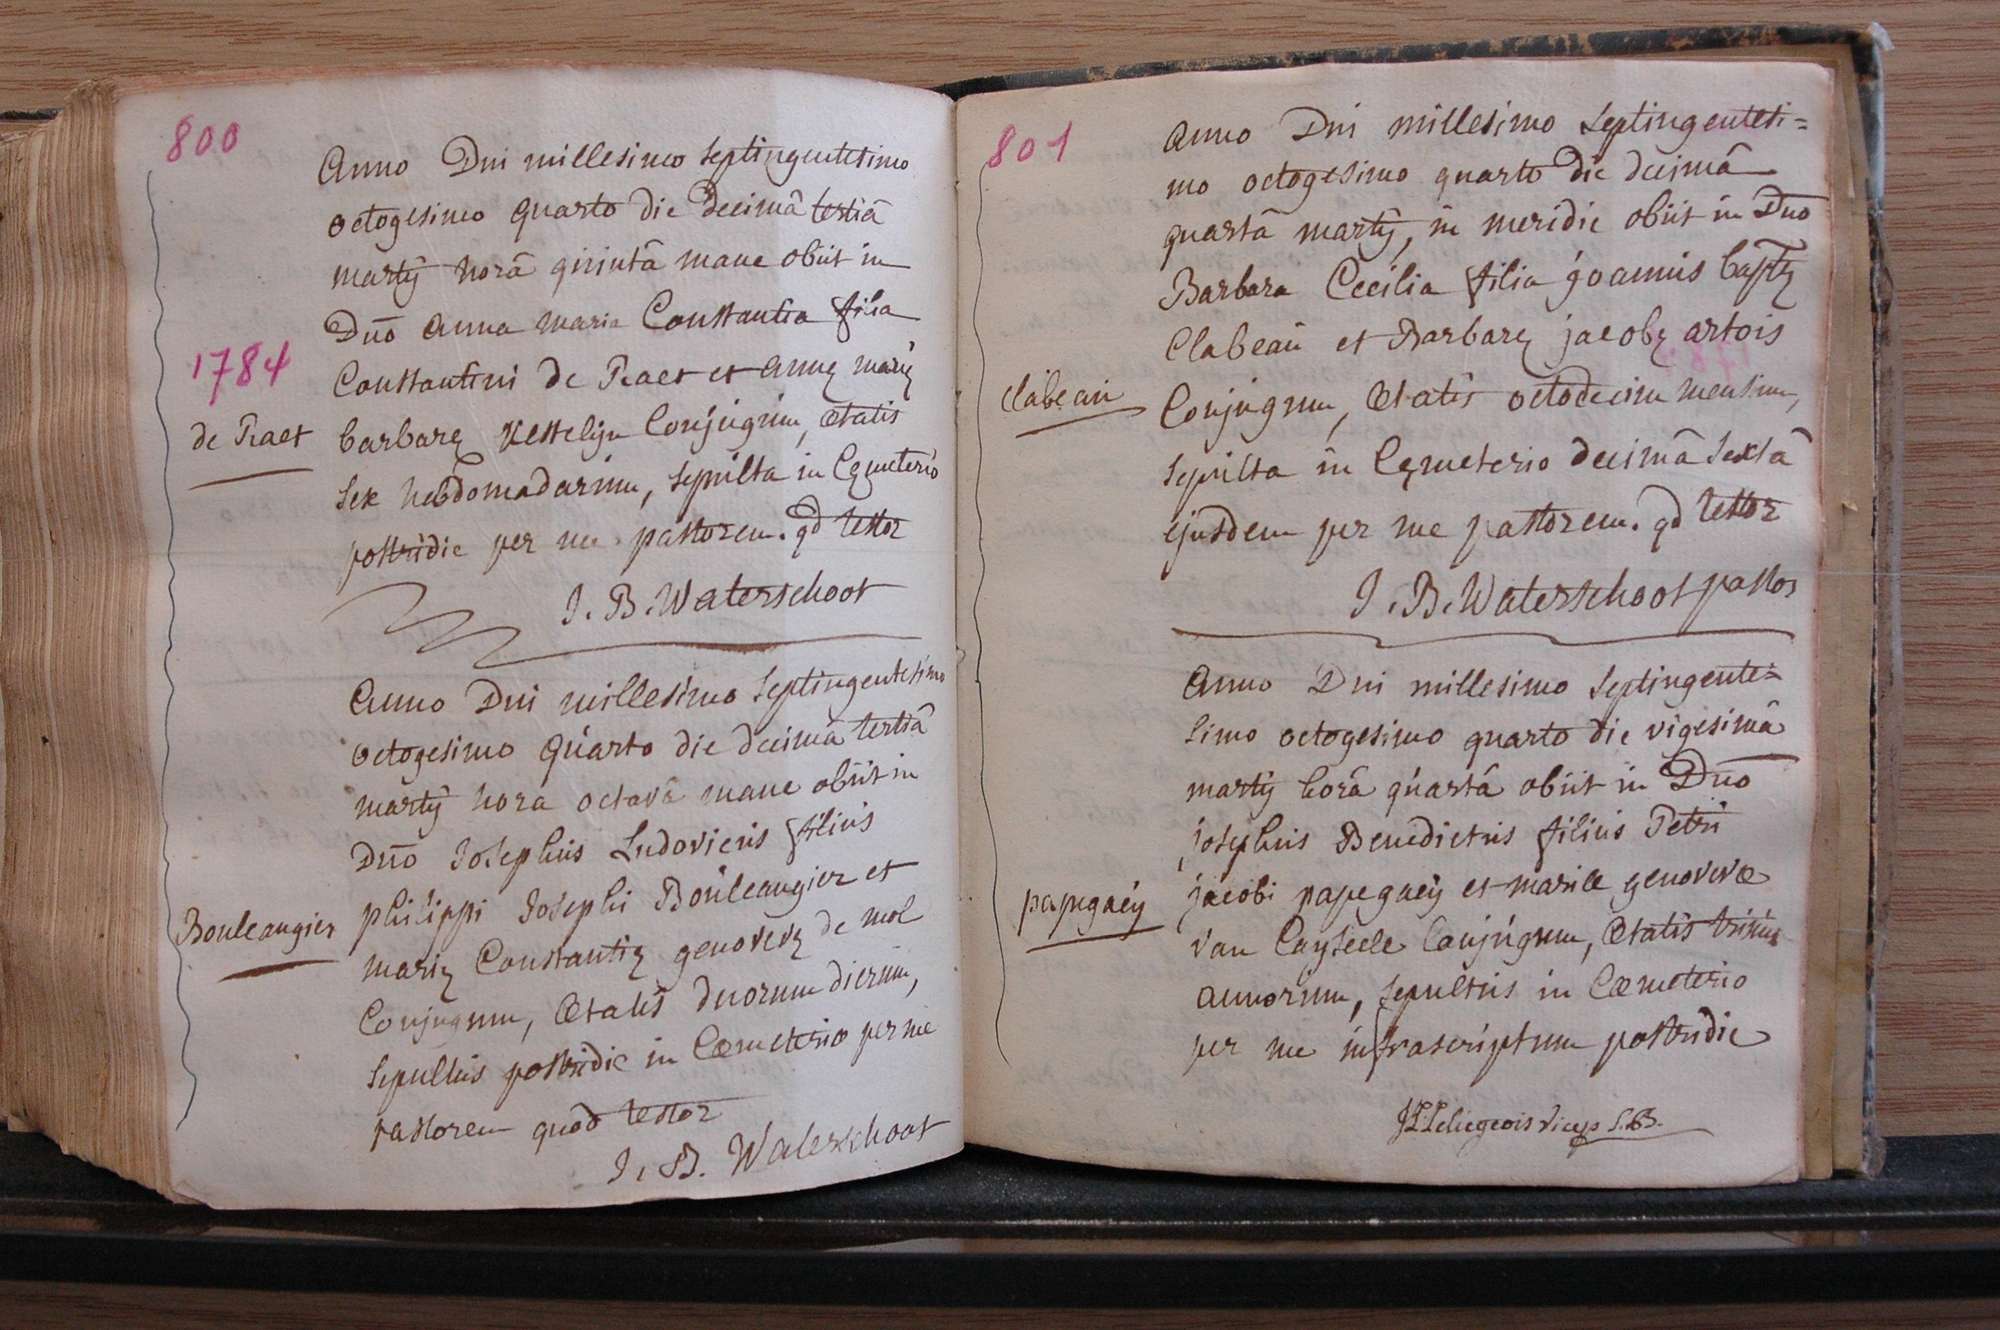 800
Anno Dni millesimo septingentesimo
octogesimo quarto die decimâ tertiâ
martij horâ qúintâ mane obiit in
Dno Anna maria Constantia filia
1784
Constantini de Raet et Annę marię
de Raet
barbarę Kestelijn Conjúgúm, ætatis
sex hebdomadarúm, sepúlta in Cęmeterio
postridie per me pastorem. qd testor
J. B. Waterschoot
Anno Dni millesimo septingentesimo
octogesimo qúarto die decimâ tertiâ
martij hora octavâ mane obiit in
Dno Josephús Ludovicús filiús
philippi Josephi Boúleangier et
Bouleangier
marię Constantię genovevę de mol
Conjugum, ætatis duorum dierum,
sepultús postridie in Cœmeterio per me
pastorem quod testor
J. B. Waterschoot
801
Anno Dni millesimo septingentesi=
mo octogesimo quarto die decimâ
quartâ martij, in meridie obiit in Dno
Barbara Cecilia filia joannis baptę
Clabeaú et Barbarę jacobę artois
clabeaú
Conjúgum, ætatis octodecim mensium,
sepúlta in Cęmeterio decimâ sextâ
ejusdem per me pastorem. qd testor
J. B. Waterschoot pastor
Anno Dni millesimo septingente=
simo octogesimo quarto die vigesimâ
martij horâ qúartâ obiit in Dno
josephus Benedictus filius Petri
jacobi papegaeij et mariæ genovevæ
papegaeij
van Cayseele Conjúgum, ætatis trium
annorúm, sepultus in Cœmeterio
per me infrascriptum postridie